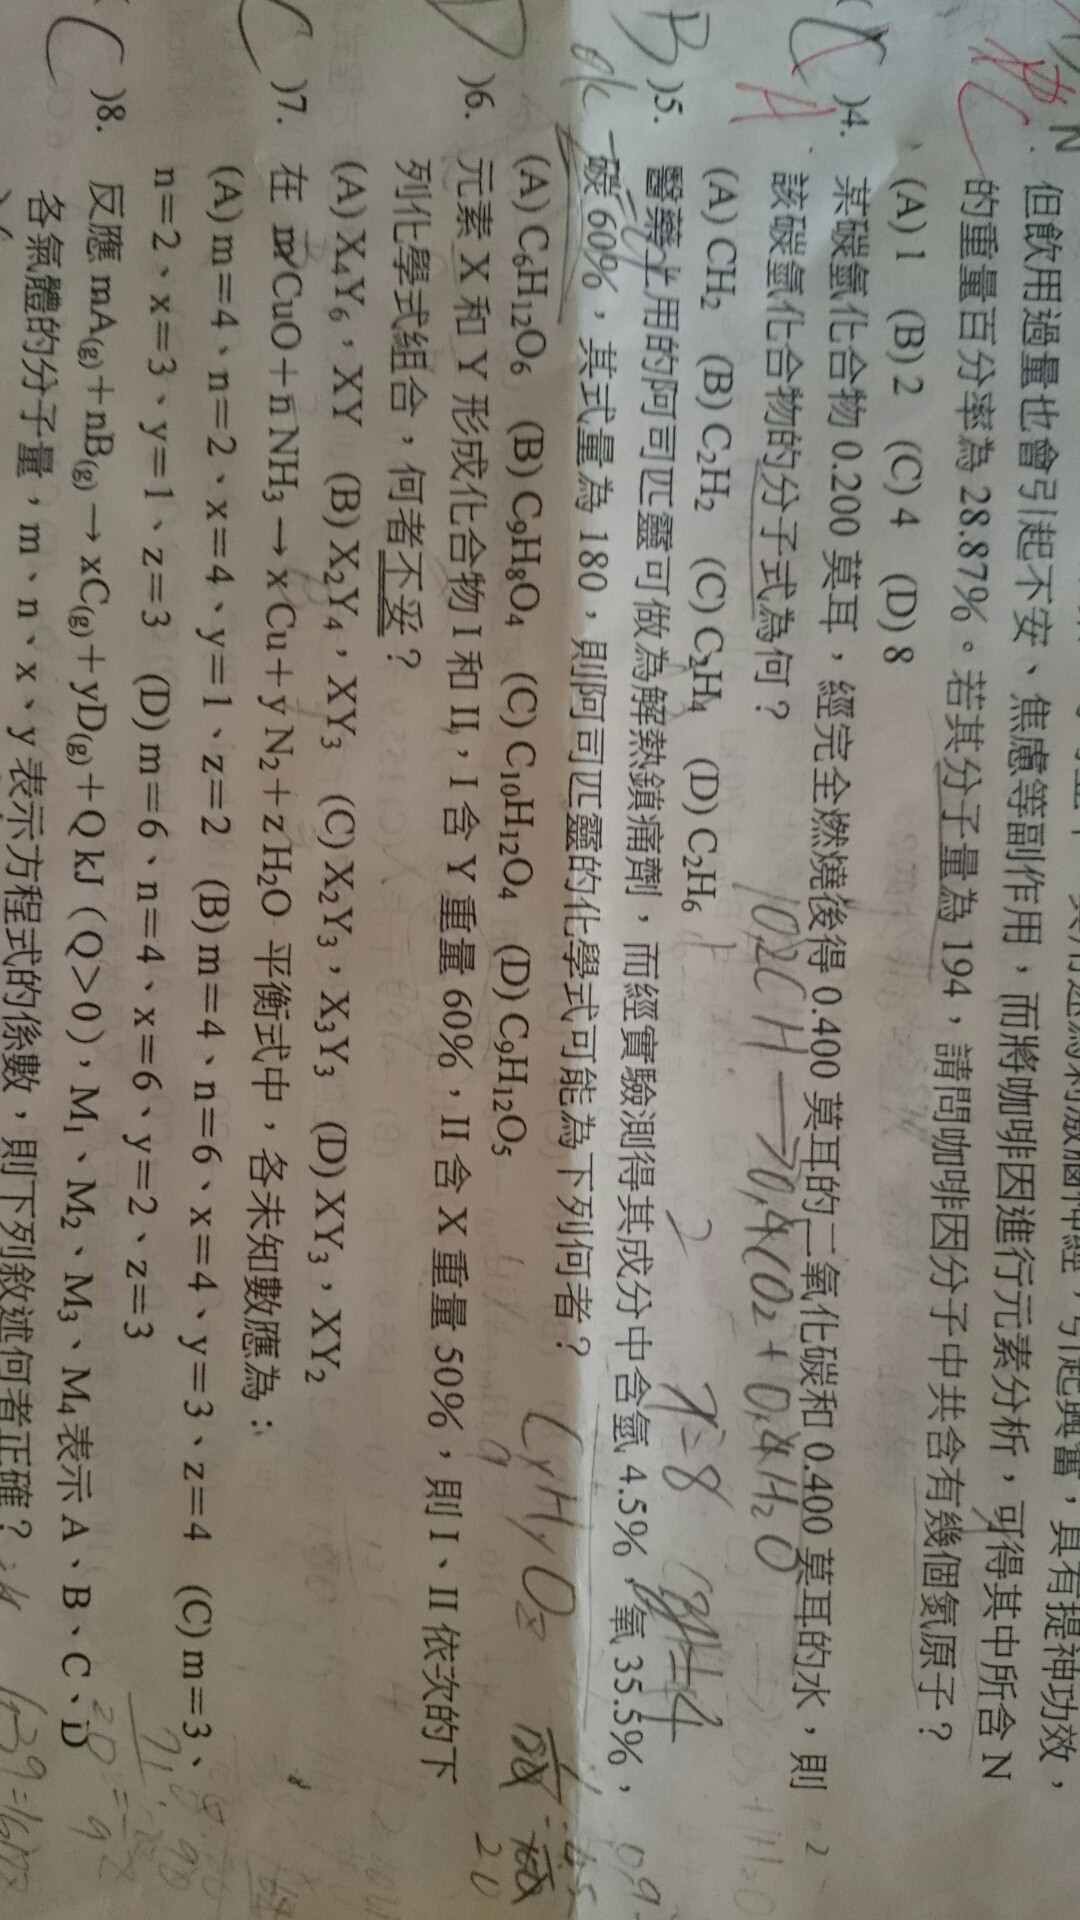 但飲用過量也會引起不安、焦慮等副作用，而將咖啡因進行元素分析，可得其中所含 N
的重量百分率為 28.87%。若其分子量為 194，請問咖啡因分子中共含有幾個氮原子？
(A) 1 (B) 2 (C) 4 (D) 8
( C )4. 某碳氫化合物 0.200 莫耳，經完全燃燒後得 0.400 莫耳的二氧化碳和 0.400 莫耳的水，則
A 該碳氫化合物的分子式為何？
0.2CH → 0.4CO₂ + 0.4H₂O
(A) CH₂ (B) C₂H₂ (C) C₂H₄ (D) C₂H₆
B )5. 醫藥上用的阿司匹靈可做為解熱鎮痛劑，而經實驗測得其成分中含氫 4.5%，氧 35.5%，
碳 60%，其式量為 180，則阿司匹靈的化學式可能為下列何者？
(A) C₆H₁₂O₆ (B) C₉H₈O₄ (C) C₁₀H₁₂O₄ (D) C₉H₁₂O₅
CxHyOz
D )6. 元素 X 和 Y 形成化合物 I 和 II，I 含 Y 重量 60%，II 含 X 重量 50%，則 I、II 依次的下
列化學式組合，何者不妥？
(A) X₄Y₆，XY (B) X₂Y₄，XY₃ (C) X₂Y₃，X₃Y₃ (D) XY₃，XY₂
C )7. 在 m CuO + n NH₃ → x Cu + y N₂ + z H₂O 平衡式中，各未知數應為：
(A) m＝4、n＝2、x＝4、y＝1、z＝2 (B) m＝4、n＝6、x＝4、y＝3、z＝4 (C) m＝3、
n＝2、x＝3、y＝1、z＝3 (D) m＝6、n＝4、x＝6、y＝2、z＝3
C )8. 反應 mA(g) + nB(g) → xC(g) + yD(g) + Q kJ（Q>0），M₁、M₂、M₃、M₄ 表示 A、B、C、D
各氣體的分子量，m、n、x、y 表示方程式的係數，則下列敘述何者正確？